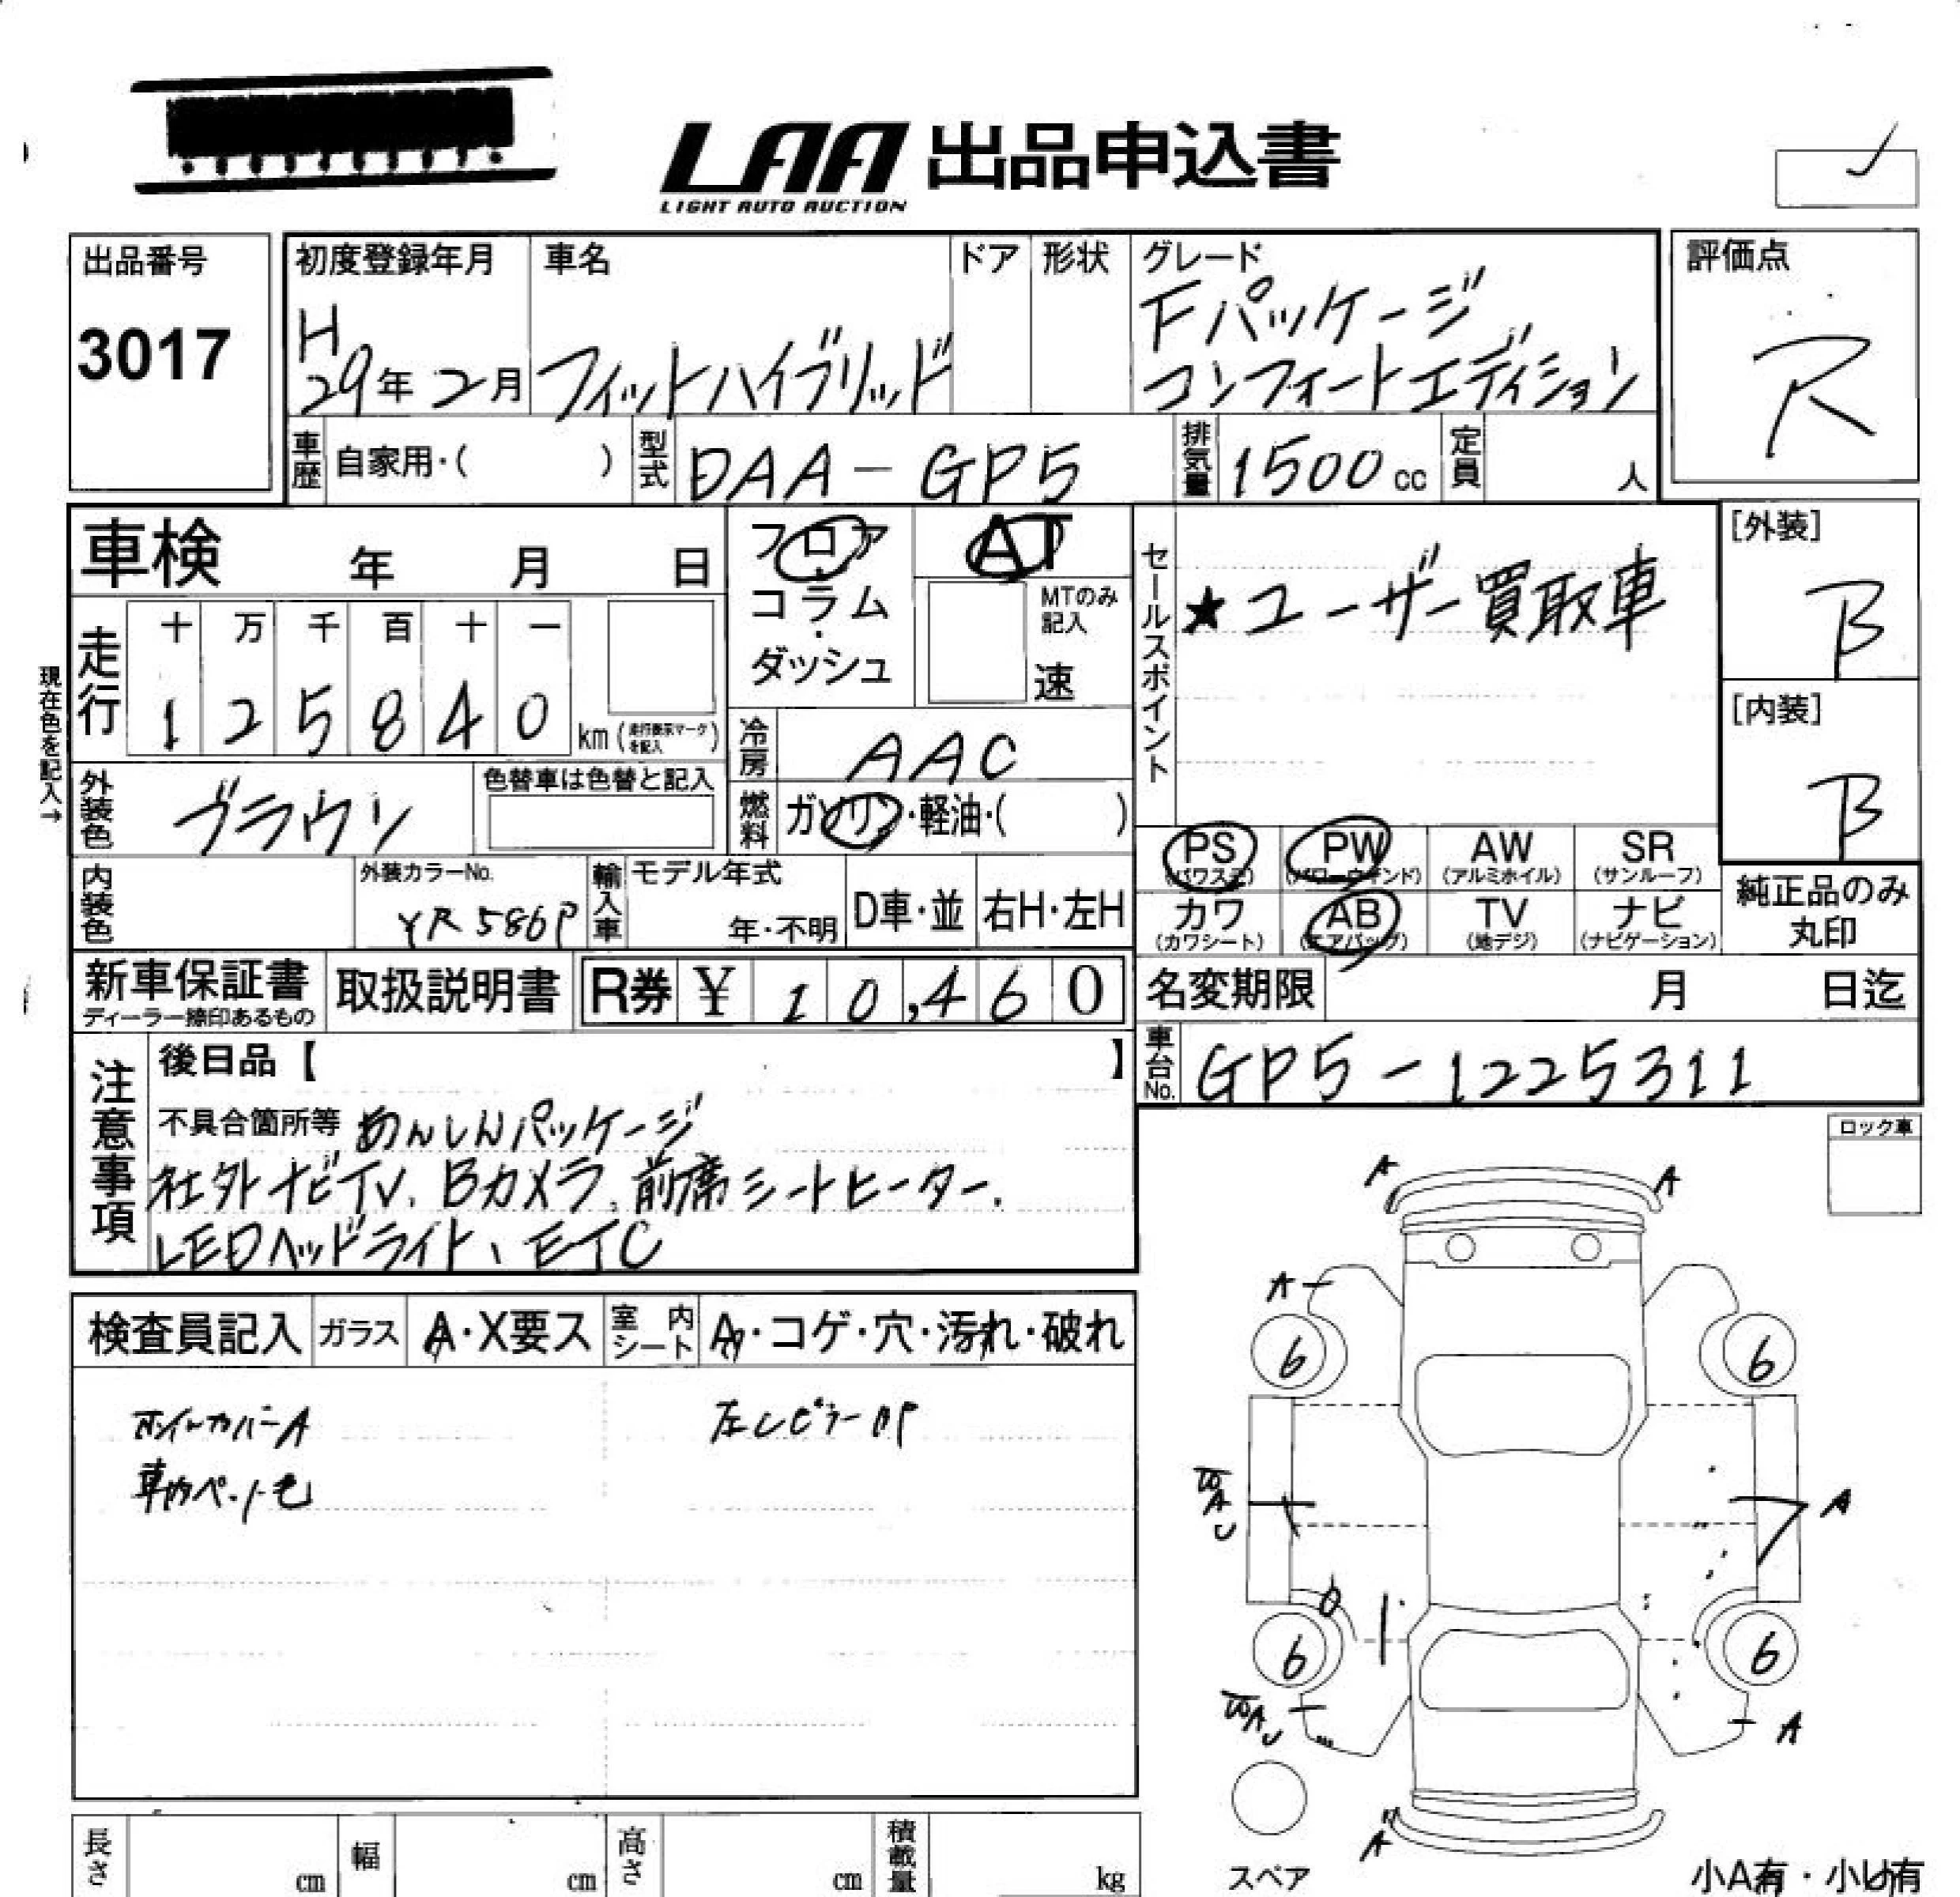 LAA 出品申込書
LIGHT AUTO AUCTION
出品番号
3017
初度登録年月
H29年2月
車名
フィットハイブリッド
ドア
形状
グレード
Fパッケージ
コンフォートエディション
評価点
R
車歴 自家用・( )
型式 DAA-GP5
排気量 1500cc
定員 人
車検 年 月 日
フロア・コラム・ダッシュ
AT
MTのみ記入
速
セールスポイント
★ユーザー買取車
[外装]
B
[内装]
B
現在色を記入→
走行
十 万 千 百 十 一
1 2 5 8 4 0
km (走行表示マークを記入)
冷房 AAC
燃料 ガソリン・軽油・( )
外装色 ブラウン
色替車は色替と記入
PS (パワステ)
PW (パワーウインド)
AW (アルミホイル)
SR (サンルーフ)
カワ (カワシート)
AB (エアバッグ)
TV (地デジ)
ナビ (ナビゲーション)
純正品のみ丸印
内装色
外装カラーNo.
YR586P
輸入車
モデル年式
年・不明
D車・並
右H・左H
新車保証書
ディーラー捺印あるもの
取扱説明書
R券 ¥ 10,460
名変期限 月 日迄
車台No. GP5-1225311
注意事項
後日品【 】
不具合箇所等 あんしんパッケージ
社外ナビTV、Bカメラ、前席シートヒーター、
LEDヘッドライト、ETC
ロック車
検査員記入
ガラス A・X要ス
室内シート A・コゲ・穴・汚れ・破れ
ホイルカバーA
車内ペット毛
A A
A
6 6
A
6 6
A
A
スペア
長さ cm
幅 cm
高さ cm
積載量 kg
小A有・小U有